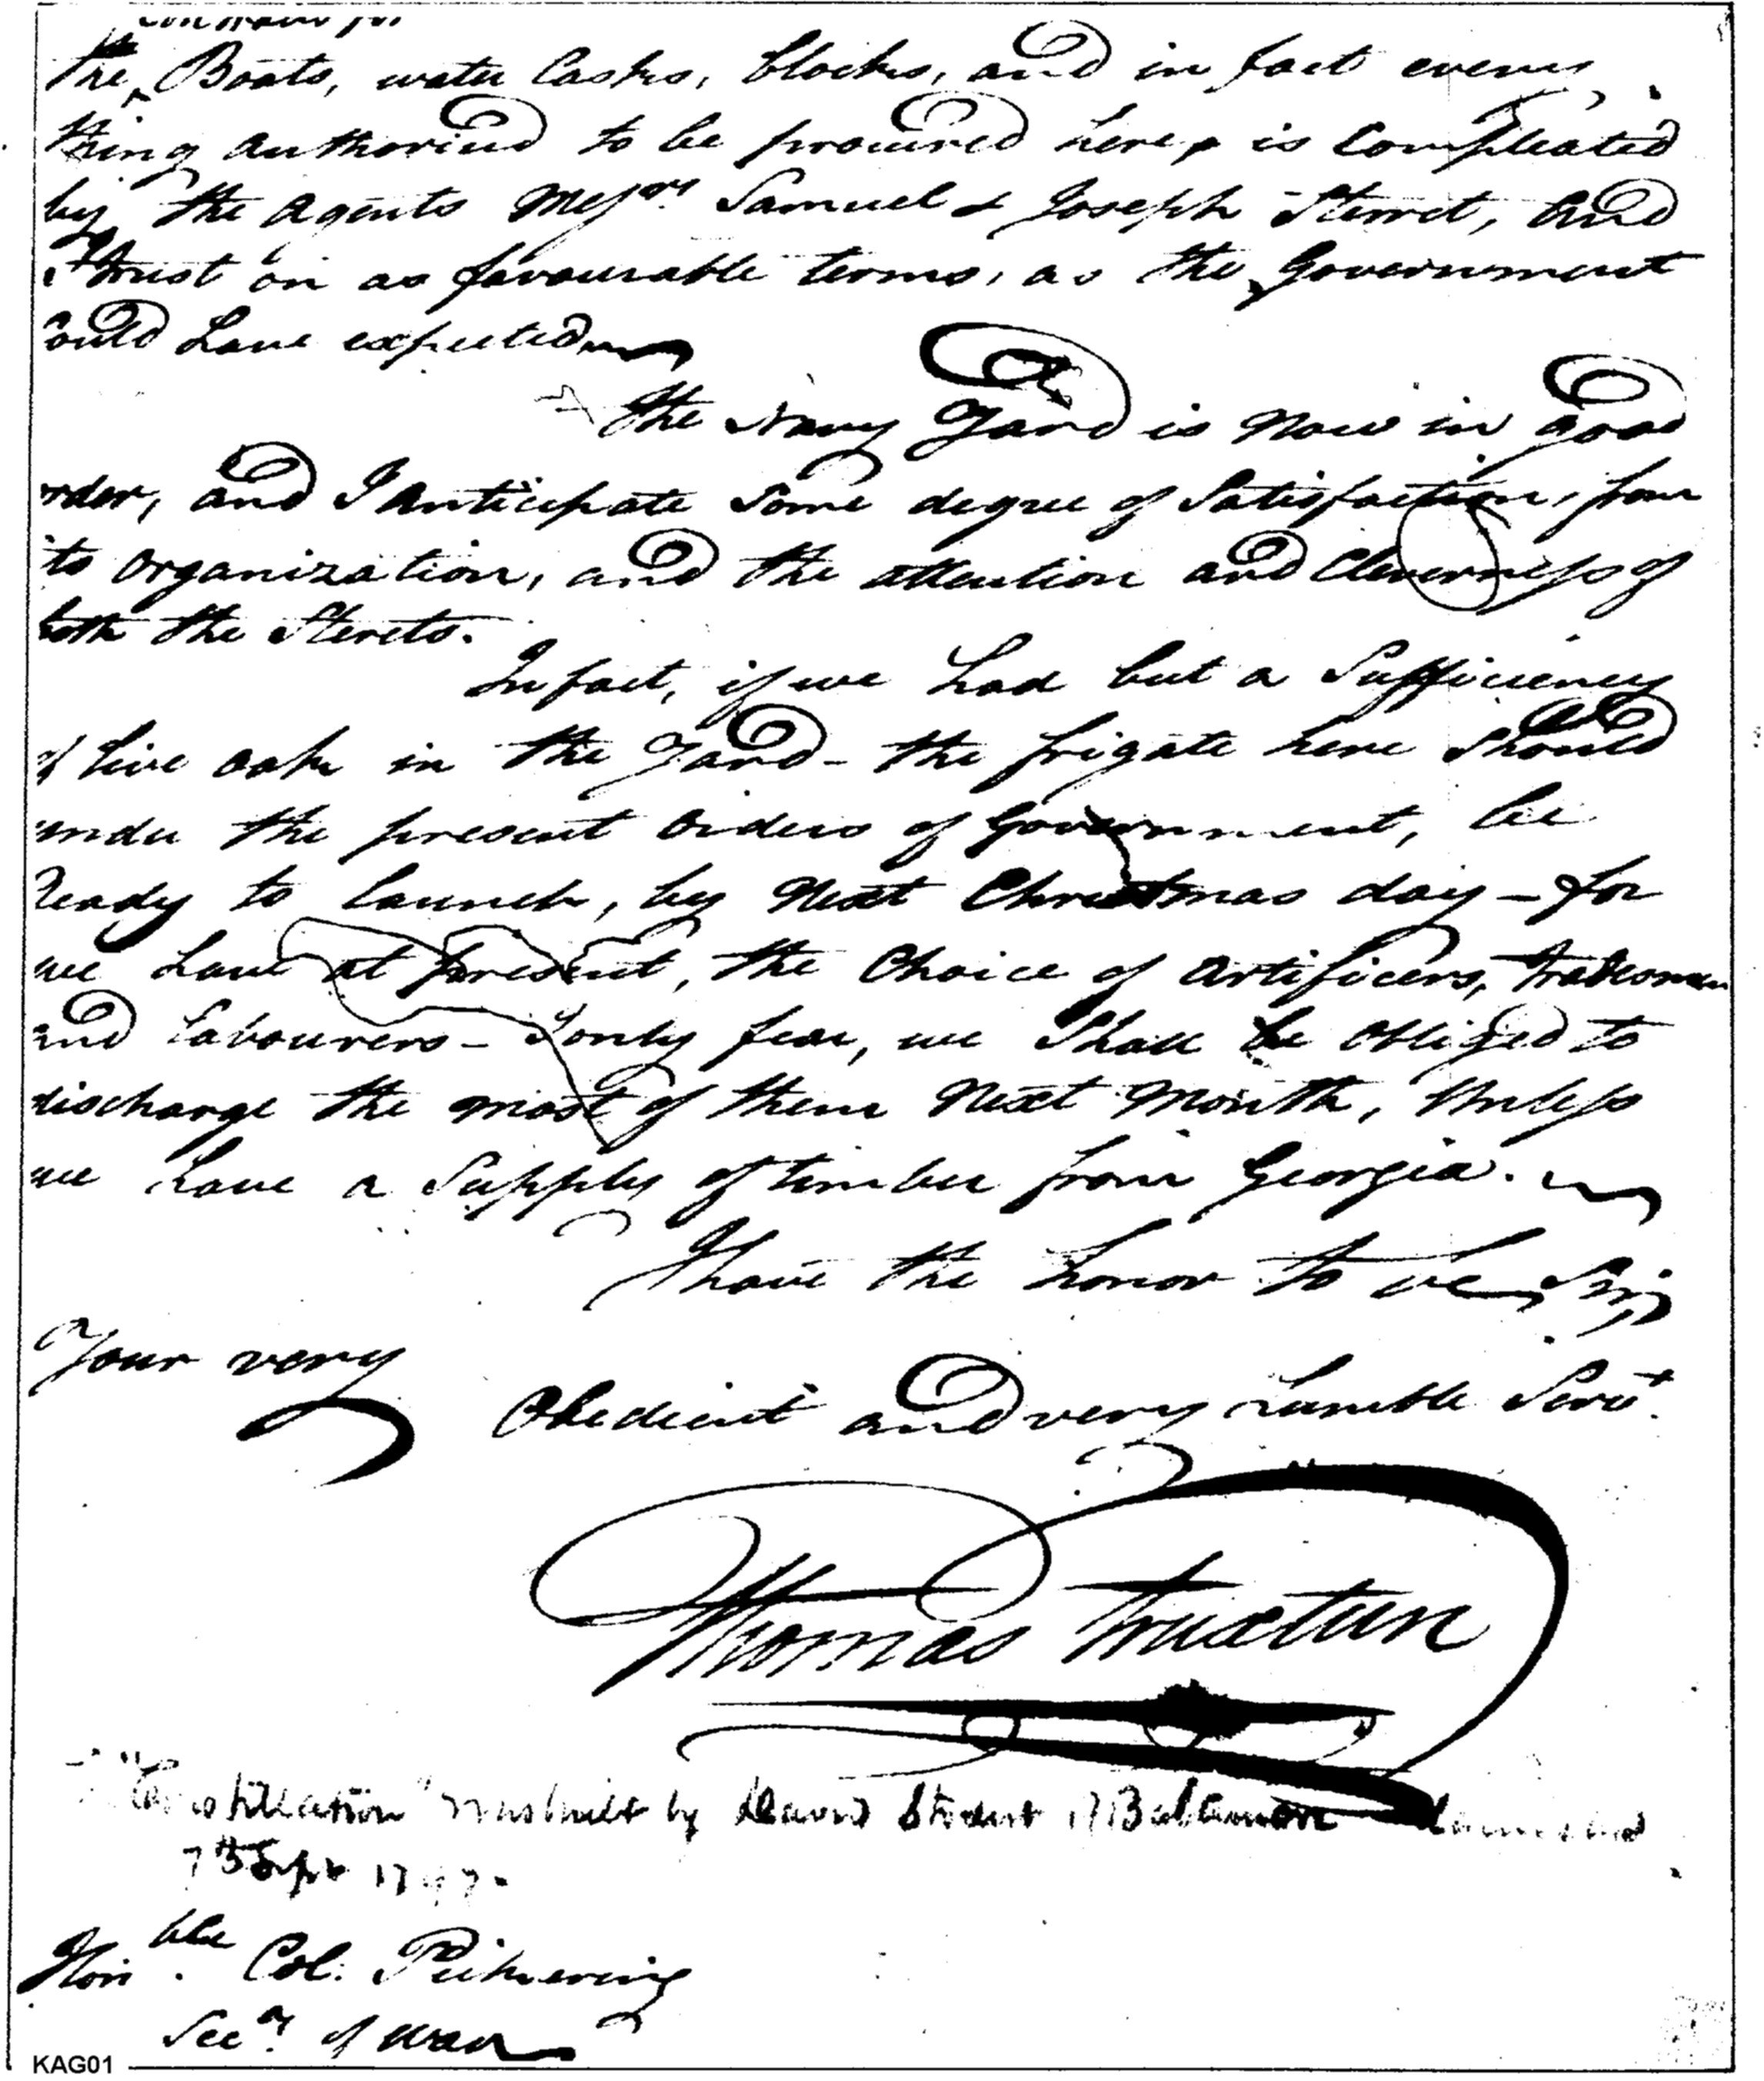 the Boats, water Casks, blocks, and in fact every
thing authorised to be procured here, is Compleated
by the Agents Messrs. Samuel & Joseph Sterret, and
I trust on as favourable terms, as the Government
Could have expected
The Navy Yard is now in good
order, and I Anticipate Some degree of Satisfaction, from
its Organization, and the attention and Cleverness of
both the Sterets.
In fact, if we had but a Sufficiency
of live oak in the Yard - the frigate here should
under the present orders of Government, be
Ready to launch, by Next Christmas day - for
we have at present, the Choice of Artificers, tradesmen
and Labourers - I only fear, we Shall be Obliged to
discharge the most of them Next Month, Unless
we have a Supply of timber from Georgia.
I have the honor to be Sir,
Your very
Obedient and very humble Servt.
Thomas Truxtun
"Constillation" was built by David Stodert Baltimore launched
7th Sept 1797.
Honble. Col. Pickering
Secy. of War
KAG01